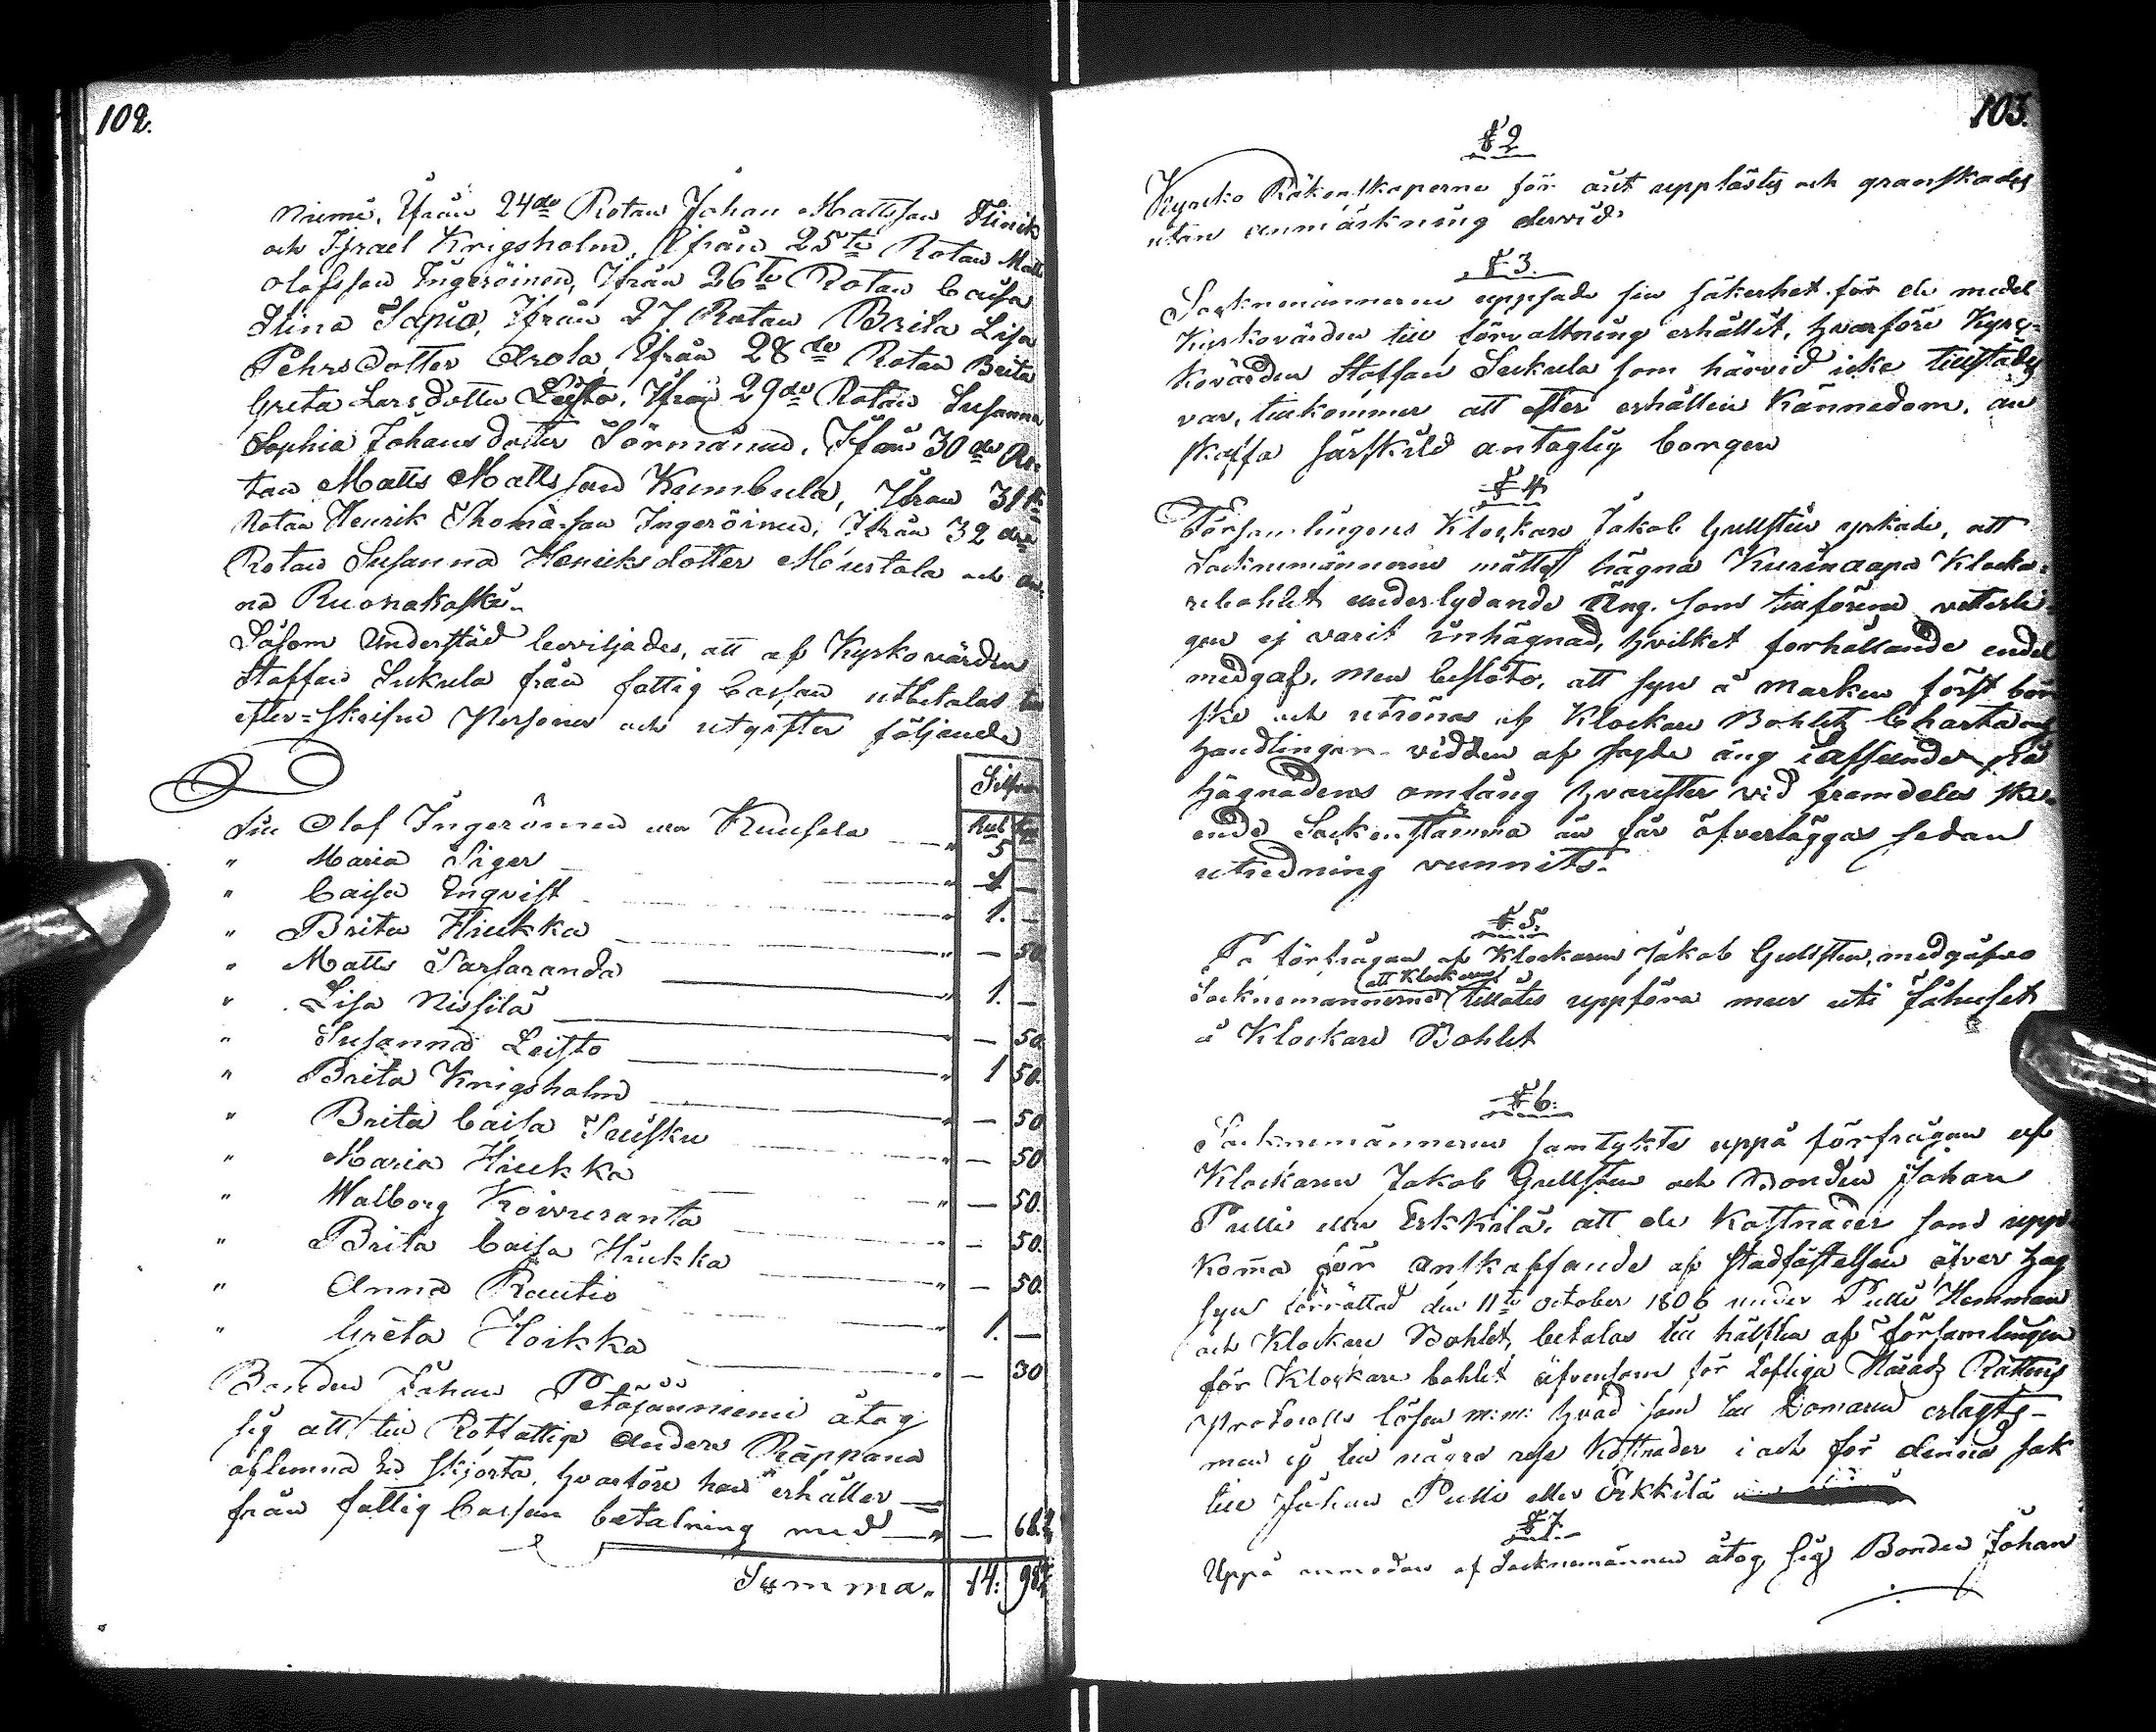 102.
niemi, Ifrån 24de Rotan Johan Mattsson Hinik
och Israel Krigsholm, Ifrån 25te Rotan Matts
Olofsson Ingeröinen, Ifrån 26te Rotan Caisa
Stina Sapio, Ifrån 27 Rotan Brita Lisa
Pehrsdotter Arola, Ifrån 28de Rotan Brita
Greta Larsdotter Leisto, Ifrån 29de Rotan Susanna
Sophia Johansdotter Sörmänen, Ifrån 30de Ro-
tan Matts Mattsson Kumbula, Ifrån 31te
Rotan Henrik Thomasson Ingeröinen, Ifrån 32dra
Rotan Susanna Henricksdotter Moustala och An-
na Ruonakoski.
Såsom Understöd beviljades, att af Kyrkovärden
Staffan Sukula från fattig Cassan utbetalas till
efter-skrifne Personer och utgifter följande
Silfver
Rub Kop
Till Olof Ingeröinen Kuusela " 5 —
" Maria Siger " 1 —
" Caisa Enqvist " 1. —
" Brita Hiukka " — 50.
" Matts Sarfaranda " 1. —
" Lisa Nissilä " — 50.
" Susanna Leisto " 1 50.
" Brita Krigsholm " — 50
" Brita Caisa Truisku " — 50
" Maria Hiukka " — 50.
" Walborg Koivuranta " — 50.
" Brita Caisa Hiukka " — 50.
" Anna Rautio " 1. —
" Greta Hoikka " — 30
Bonden Johan Petäjäniemi åtog
sig att till Rotfattige Anders Räppänä
aflemna en skjorta, hvarföre han erhåller
från fattig Cassan betalning med " — 68
Summa " 14. 98
103.
§ 2
Kyrcko Räkenskaperne för året upplästes och granskades
utan anmärkning dervid.
§ 3.
Socknemännerne uppsade sin säkerhet för de medel
Kyrkovärden till förvaltning erhållit, hvarföre Kyrc-
kovärden Staffan Sukula som härvid icke tillstädes
var, tillkommer att efter erhållen Kännedom, an
skaffa särskild antaglig borgen
§ 4
Församlingens Klockare Jakob Gullsten yrkade, att
Socknemännerne måtte hägna Kurinaapa Klocka-
rebohlet underlydande Äng, som tillförene veterli-
gen ej varit inhägnad, hvilket forhållande endel
medgaf, men beslöto, att syn å marken först bör
ske och utrönas af Klockare Bohlets Charta och
handlingar vidden af sagde äng iafseende på
hägnadens omfång hvarefter vid framdeles ske-
ende Sockenstämma än får öfverläggas sedan
utredning vunnits.
§ 5.
På förfrågan af Klockaren Jakob Gullsten, medgåfvo
Socknemännerne (att Klockaren) tillåtes uppföra mur uti Fähuset
å Klockare Bohlet
§ 6.
Socknemännerne samtykte uppå förfrågan af
Klockaren Jakob Gullsten och Bonden Johan
Pulli eller Erkkilä, att de Kostnader som upp-
komma för anskaffande af stadfästelsen öfver hag
syn förrättad den 11te October 1806 under Pulli Hemman
och Klockare Bohlet, betalas till hälften af församlingen
för Klockare bohlet äfvensom för Lofliga Härads Rättens
Protocolls lösen m:m: hvad som till Domaren erlagts
men ej till några rese Kostnader i och för denna sak
till Johan Pulli eller Erkkilä
§ 7.
Uppå anmodan af Socknemännen åtog sig Bonden Johan